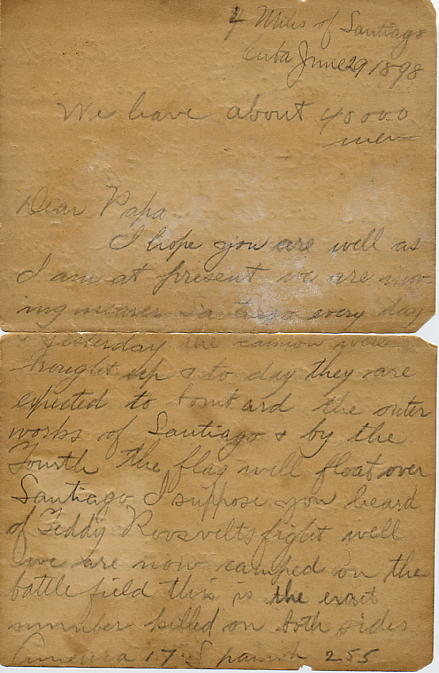 4 Miles of Santiago
Cuba June 29 1898
We have about 40000
men
Dear Papa
I hope you are well as
I am at present we are mov
ing nearer Santiago every day
& yesterday the cannon were
brought up & to day they are
expected to bombard the outer
works of Santiago & by the
Fourth the flag will float over
Santiago I suppose you heard
of Teddy Roosvelts fight well
we are now camped on the
battle field this is the exact
number killed on both sides
America 17 Spanish 255